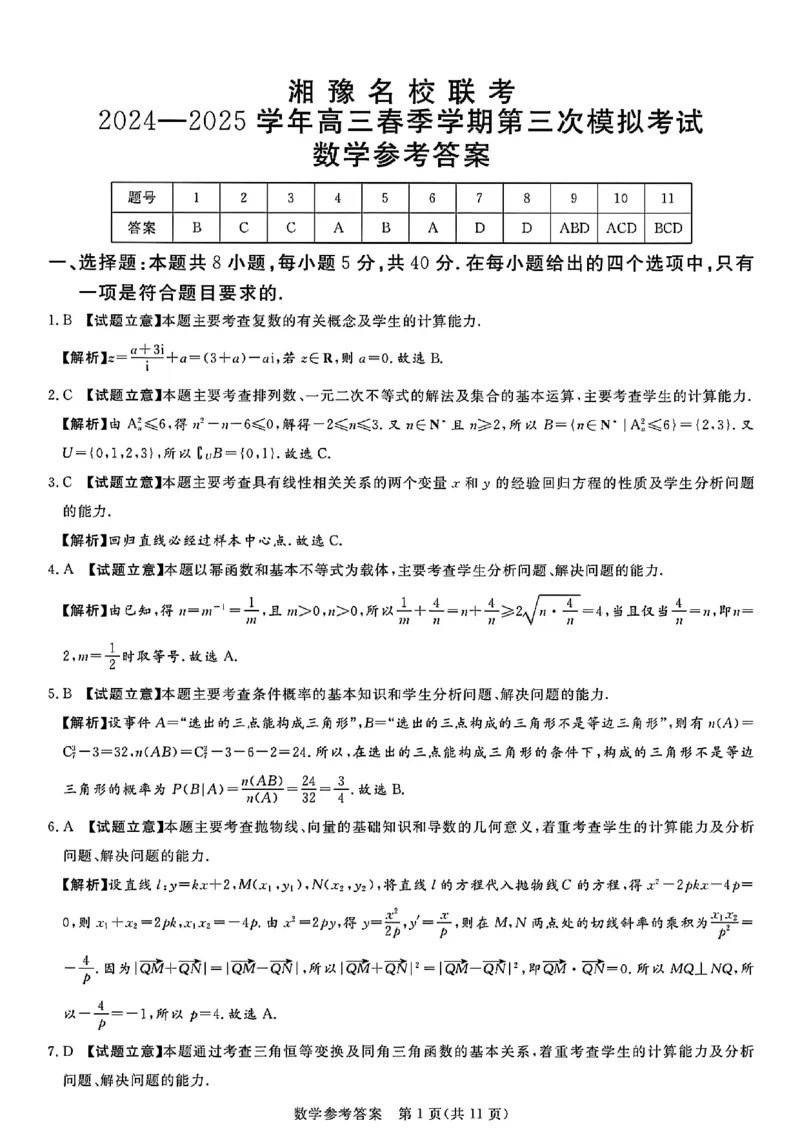 湘豫名校联考
2024—2025学年高三春季学期第三次模拟考试
数学参考答案
题号 1 2 3 4 5 6 7 8 9 10 11
答案 B C C A B A D D ABD ACD BCD
一、选择题:本题共8小题,每小题5分,共40分.在每小题给出的四个选项中,只有
一项是符合题目要求的.
1.B 【试题立意】本题主要考查复数的有关概念及学生的计算能力.
【解析】z=\frac{a+3i}{i}+a=(3+a)-ai,若 z∈R,则 a=0.故选 B.
2.C 【试题立意】本题主要考查排列数、一元二次不等式的解法及集合的基本运算,主要考查学生的计算能力.
【解析】由 A_n^2≤6,得 n²-n-6≤0,解得-2≤n≤3.又 n∈N* 且 n≥2,所以 B={n∈N*|A_n^2≤6}={2,3}.又
U={0,1,2,3},所以∁_UB={0,1}.故选 C.
3.C 【试题立意】本题主要考查具有线性相关关系的两个变量 x 和 y 的经验回归方程的性质及学生分析问题
的能力.
【解析】回归直线必经过样本中心点.故选 C.
4.A 【试题立意】本题以幂函数和基本不等式为载体,主要考查学生分析问题、解决问题的能力.
【解析】由已知,得 n=m^{-1}=\frac{1}{m},且 m>0,n>0,所以\frac{1}{m}+\frac{4}{n}=n+\frac{4}{n}≥2\sqrt{n·\frac{4}{n}}=4,当且仅当\frac{4}{n}=n,即n=
2,m=\frac{1}{2}时取等号.故选 A.
5.B 【试题立意】本题主要考查条件概率的基本知识和学生分析问题、解决问题的能力.
【解析】设事件 A=“选出的三点能构成三角形”,B=“选出的三点构成的三角形不是等边三角形”,则有 n(A)=
C_7^3-3=32,n(AB)=C_7^3-3-6-2=24.所以,在选出的三点能构成三角形的条件下,构成的三角形不是等边
三角形的概率为 P(B|A)=\frac{n(AB)}{n(A)}=\frac{24}{32}=\frac{3}{4}.故选 B.
6.A 【试题立意】本题主要考查抛物线、向量的基础知识和导数的几何意义,着重考查学生的计算能力及分析
问题、解决问题的能力.
【解析】设直线 l:y=kx+2,M(x₁,y₁),N(x₂,y₂),将直线 l 的方程代入抛物线C 的方程,得 x²-2pkx-4p=
0,则 x₁+x₂=2pk,x₁x₂=-4p.由 x²=2py,得 y=\frac{x²}{2p},y′=\frac{x}{p},则在 M,N 两点处的切线斜率的乘积为\frac{x₁x₂}{p²}=
-\frac{4}{p}.因为|\overrightarrow{QM}+\overrightarrow{QN}|=|\overrightarrow{QM}-\overrightarrow{QN}|,所以|\overrightarrow{QM}+\overrightarrow{QN}|²=|\overrightarrow{QM}-\overrightarrow{QN}|²,即\overrightarrow{QM}·\overrightarrow{QN}=0.所以 MQ⊥NQ,所
以-\frac{4}{p}=-1,所以 p=4.故选 A.
7.D 【试题立意】本题通过考查三角恒等变换及同角三角函数的基本关系,着重考查学生的计算能力及分析
问题、解决问题的能力.
数学参考答案 第1页(共11页)